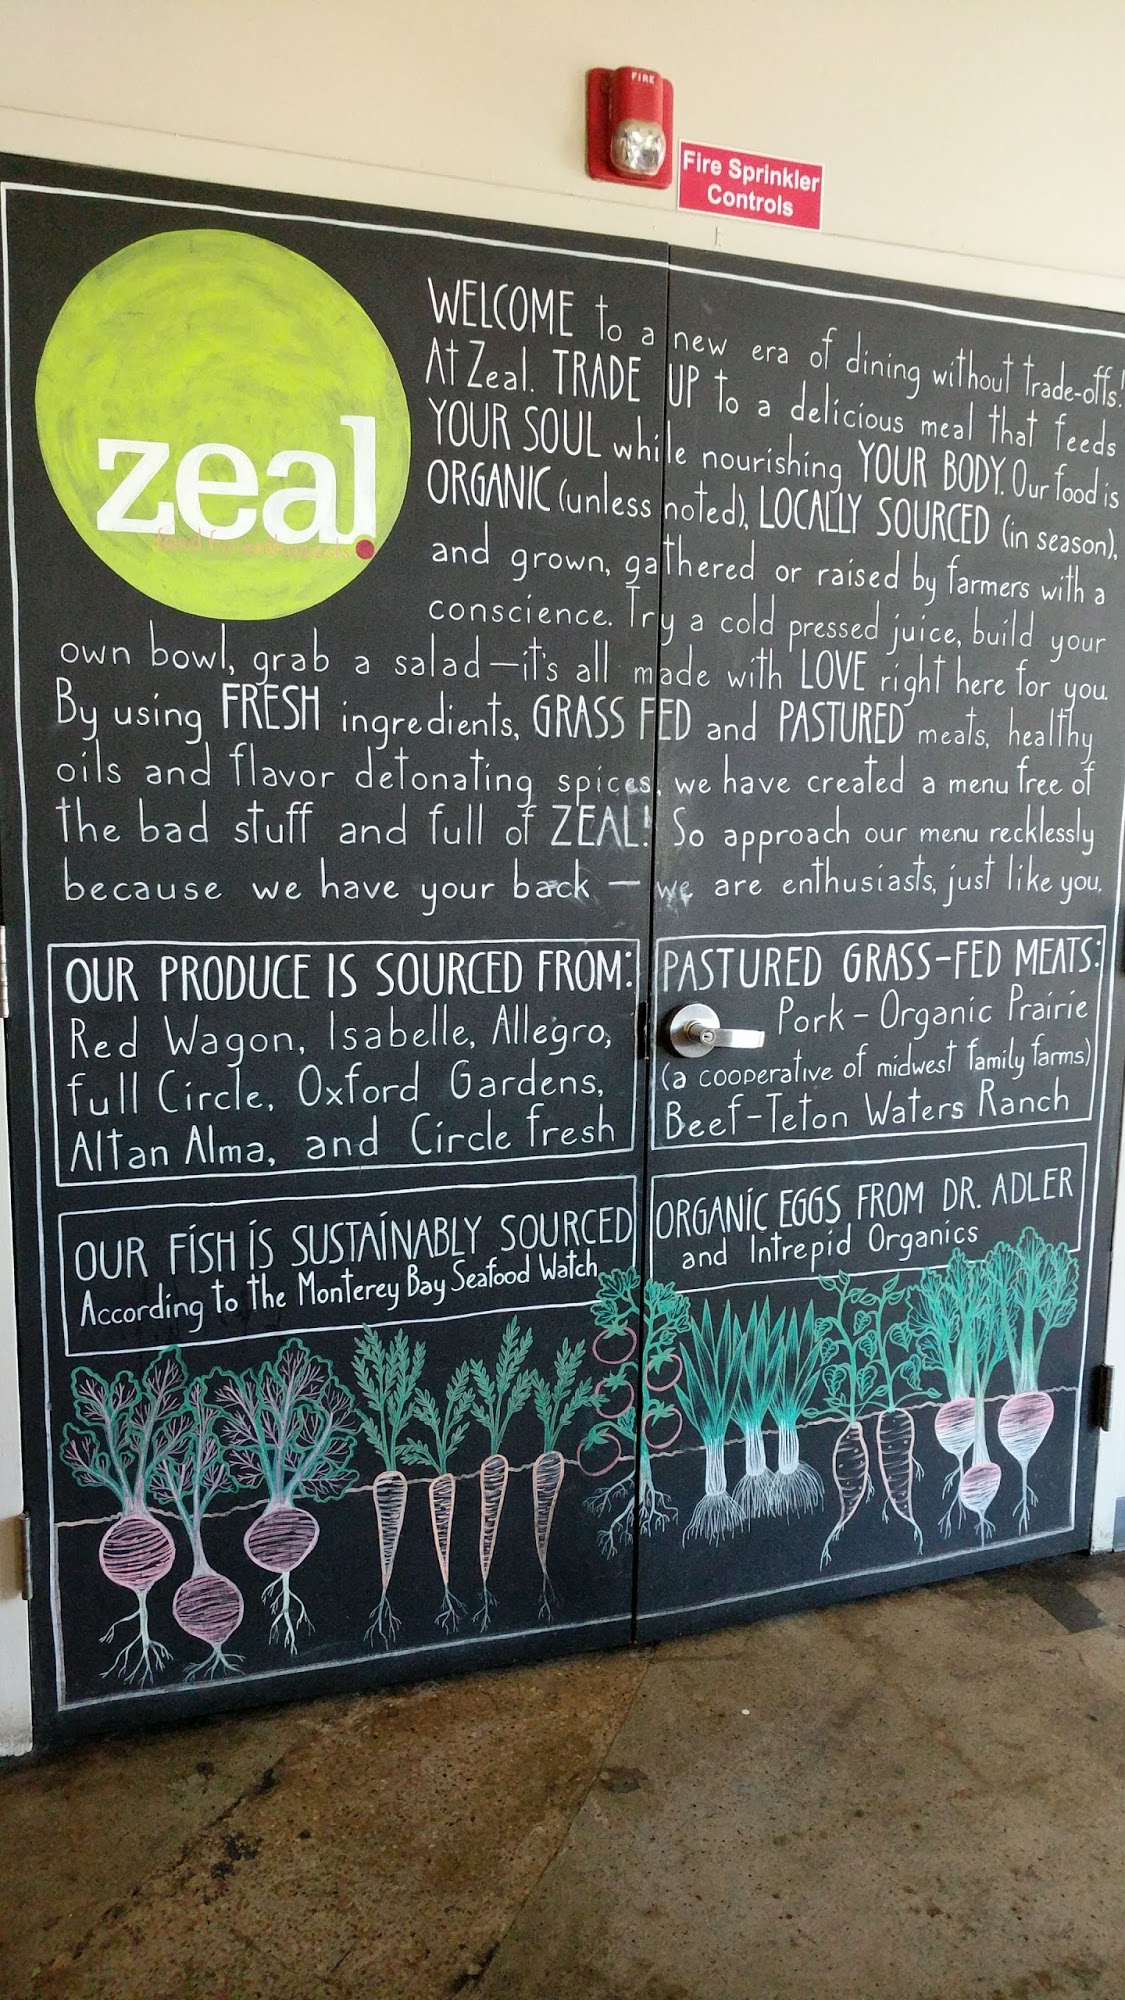 FIRE
Fire Sprinkler
Controls
zeal.
food for enthusiasts
WELCOME to a new era of dining without trade-offs!
At Zeal. TRADE UP to a delicious meal that feeds
YOUR SOUL while nourishing YOUR BODY. Our food is
ORGANIC (unless noted), LOCALLY SOURCED (in season),
and grown, gathered or raised by farmers with a
conscience. Try a cold pressed juice, build your
own bowl, grab a salad—it's all made with LOVE right here for you.
By using FRESH ingredients, GRASS FED and PASTURED meats, healthy
oils and flavor detonating spices, we have created a menu free of
the bad stuff and full of ZEAL! So approach our menu recklessly
because we have your back — we are enthusiasts, just like you.
OUR PRODUCE IS SOURCED FROM:
Red Wagon, Isabelle, Allegro,
full Circle, Oxford Gardens,
Altan Alma, and Circle fresh
PASTURED GRASS-FED MEATS:
Pork - Organic Prairie
(a cooperative of midwest family farms)
Beef-Teton Waters Ranch
OUR FISH IS SUSTAINABLY SOURCED
According to the Monterey Bay Seafood Watch
ORGANIC EGGS FROM DR. ADLER
and Intrepid Organics